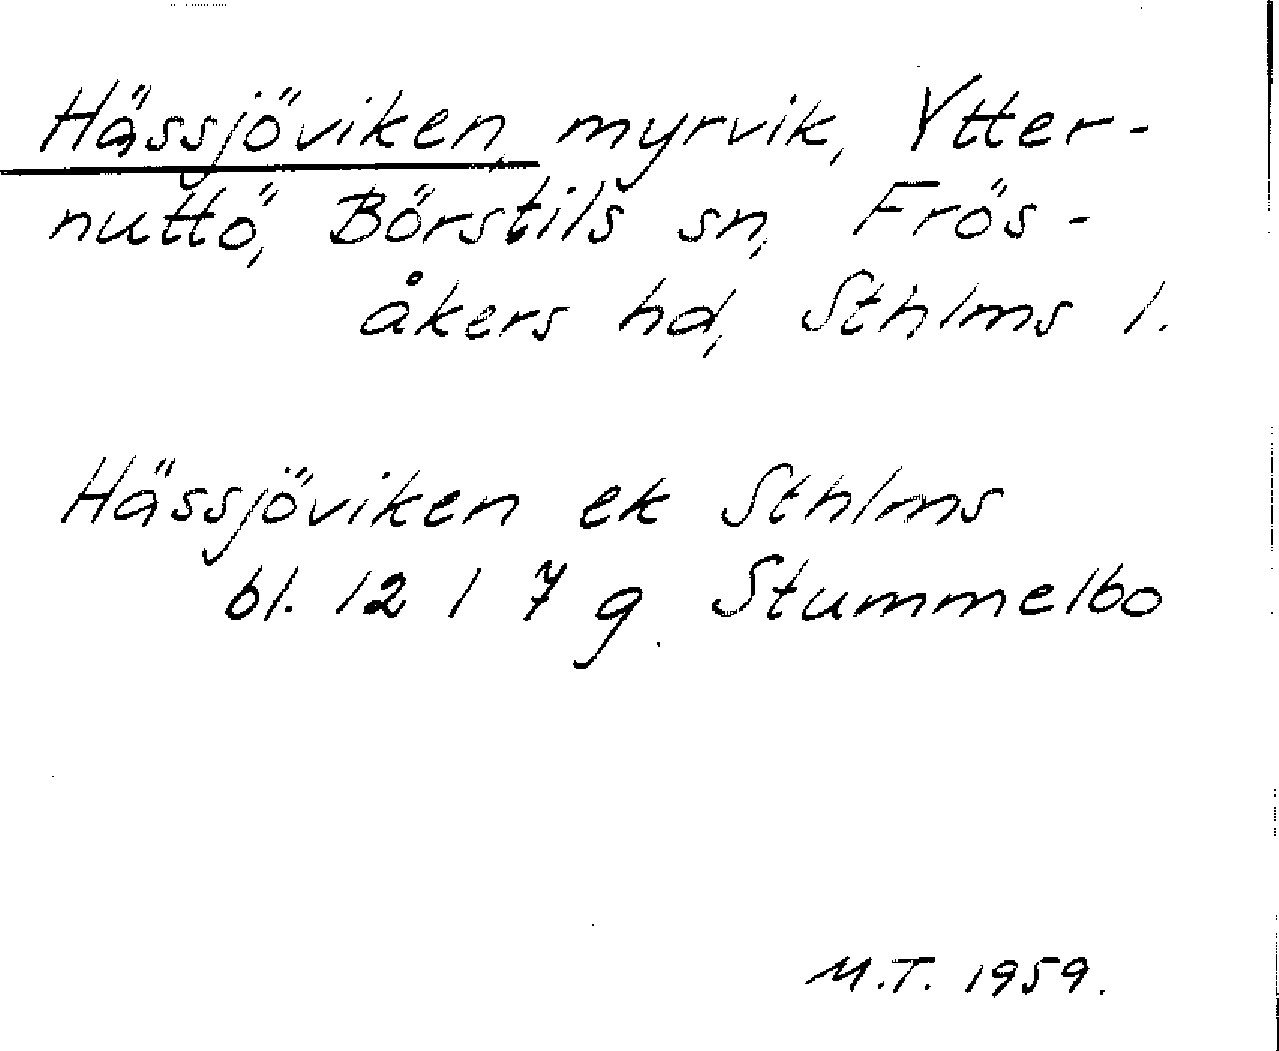 Hässjöviken, myrvik, Ytter-
nuttö, Börstils sn, Frös-
åkers hd, Sthlms l.
Hässjöviken ek Sthlms
bl. 12 I 7 g Stummelbo
M.T. 1959.